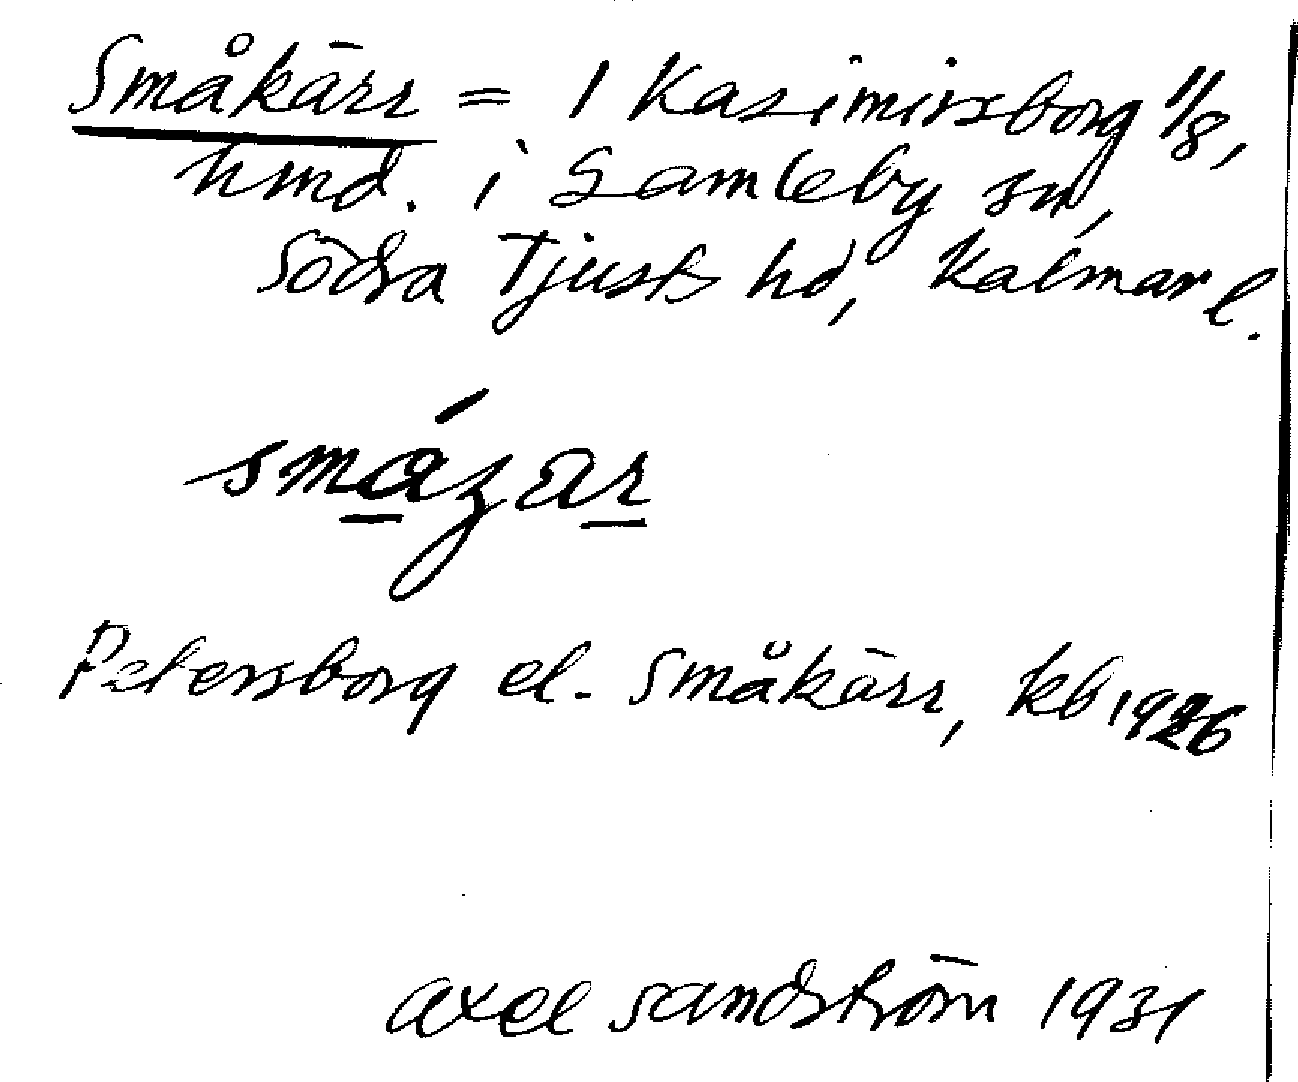 Småkärr = 1 Kasimirsborg 1/8,
hmd. i Gamleby sn,
Södra Tjusts hd, Kalmar l.
smázar
Petersborg el. Småkärr, kb 1926
Axel Sandström 1931